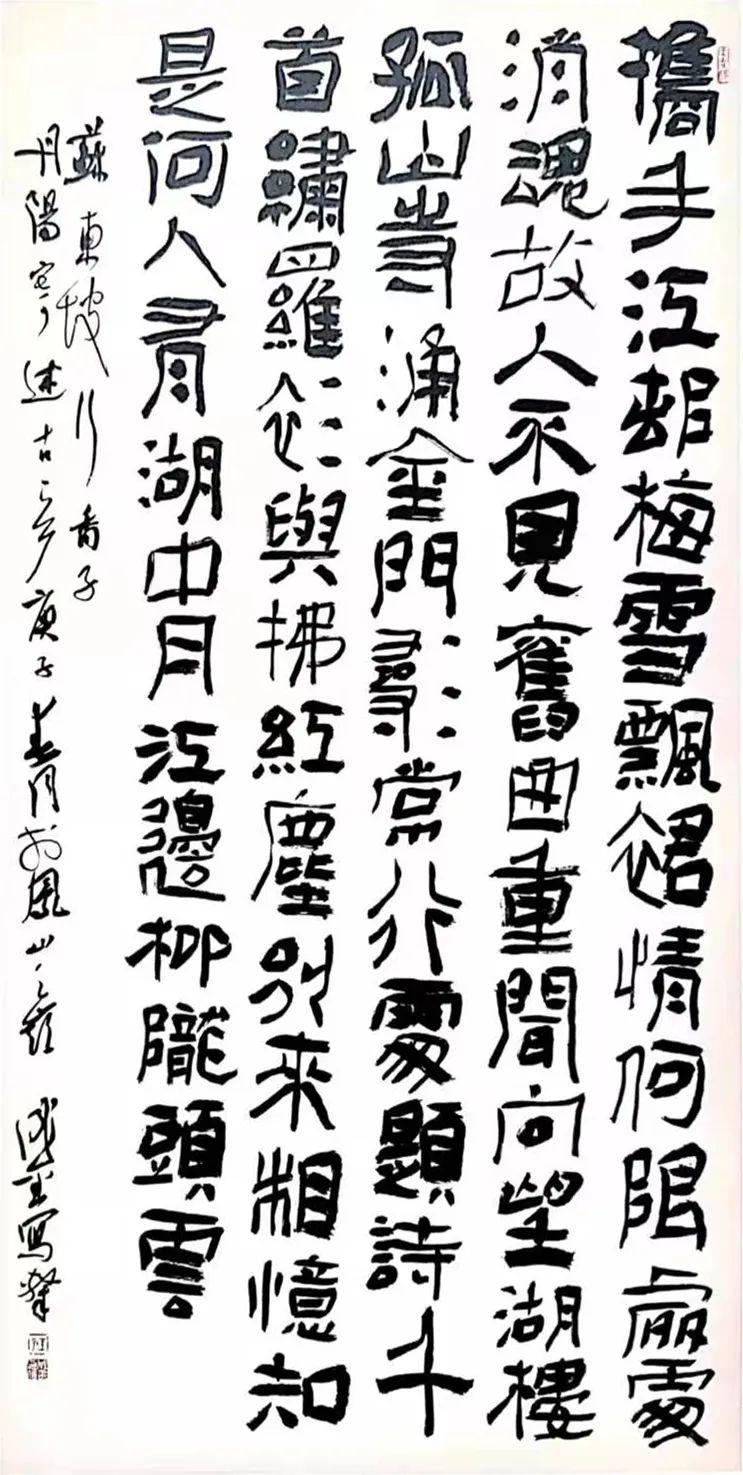 攜手江邨梅雪飄裙情何限處處
消魂故人不見舊曲重聞向望湖樓
孤山寺涌金門尋常行處題詩千
首繡羅衫與拂紅塵別來相憶知
是何人有湖中月江邊柳隴頭雲
蘇東坡行香子
丹陽寄述古 庚子春月於鳳山之 寫